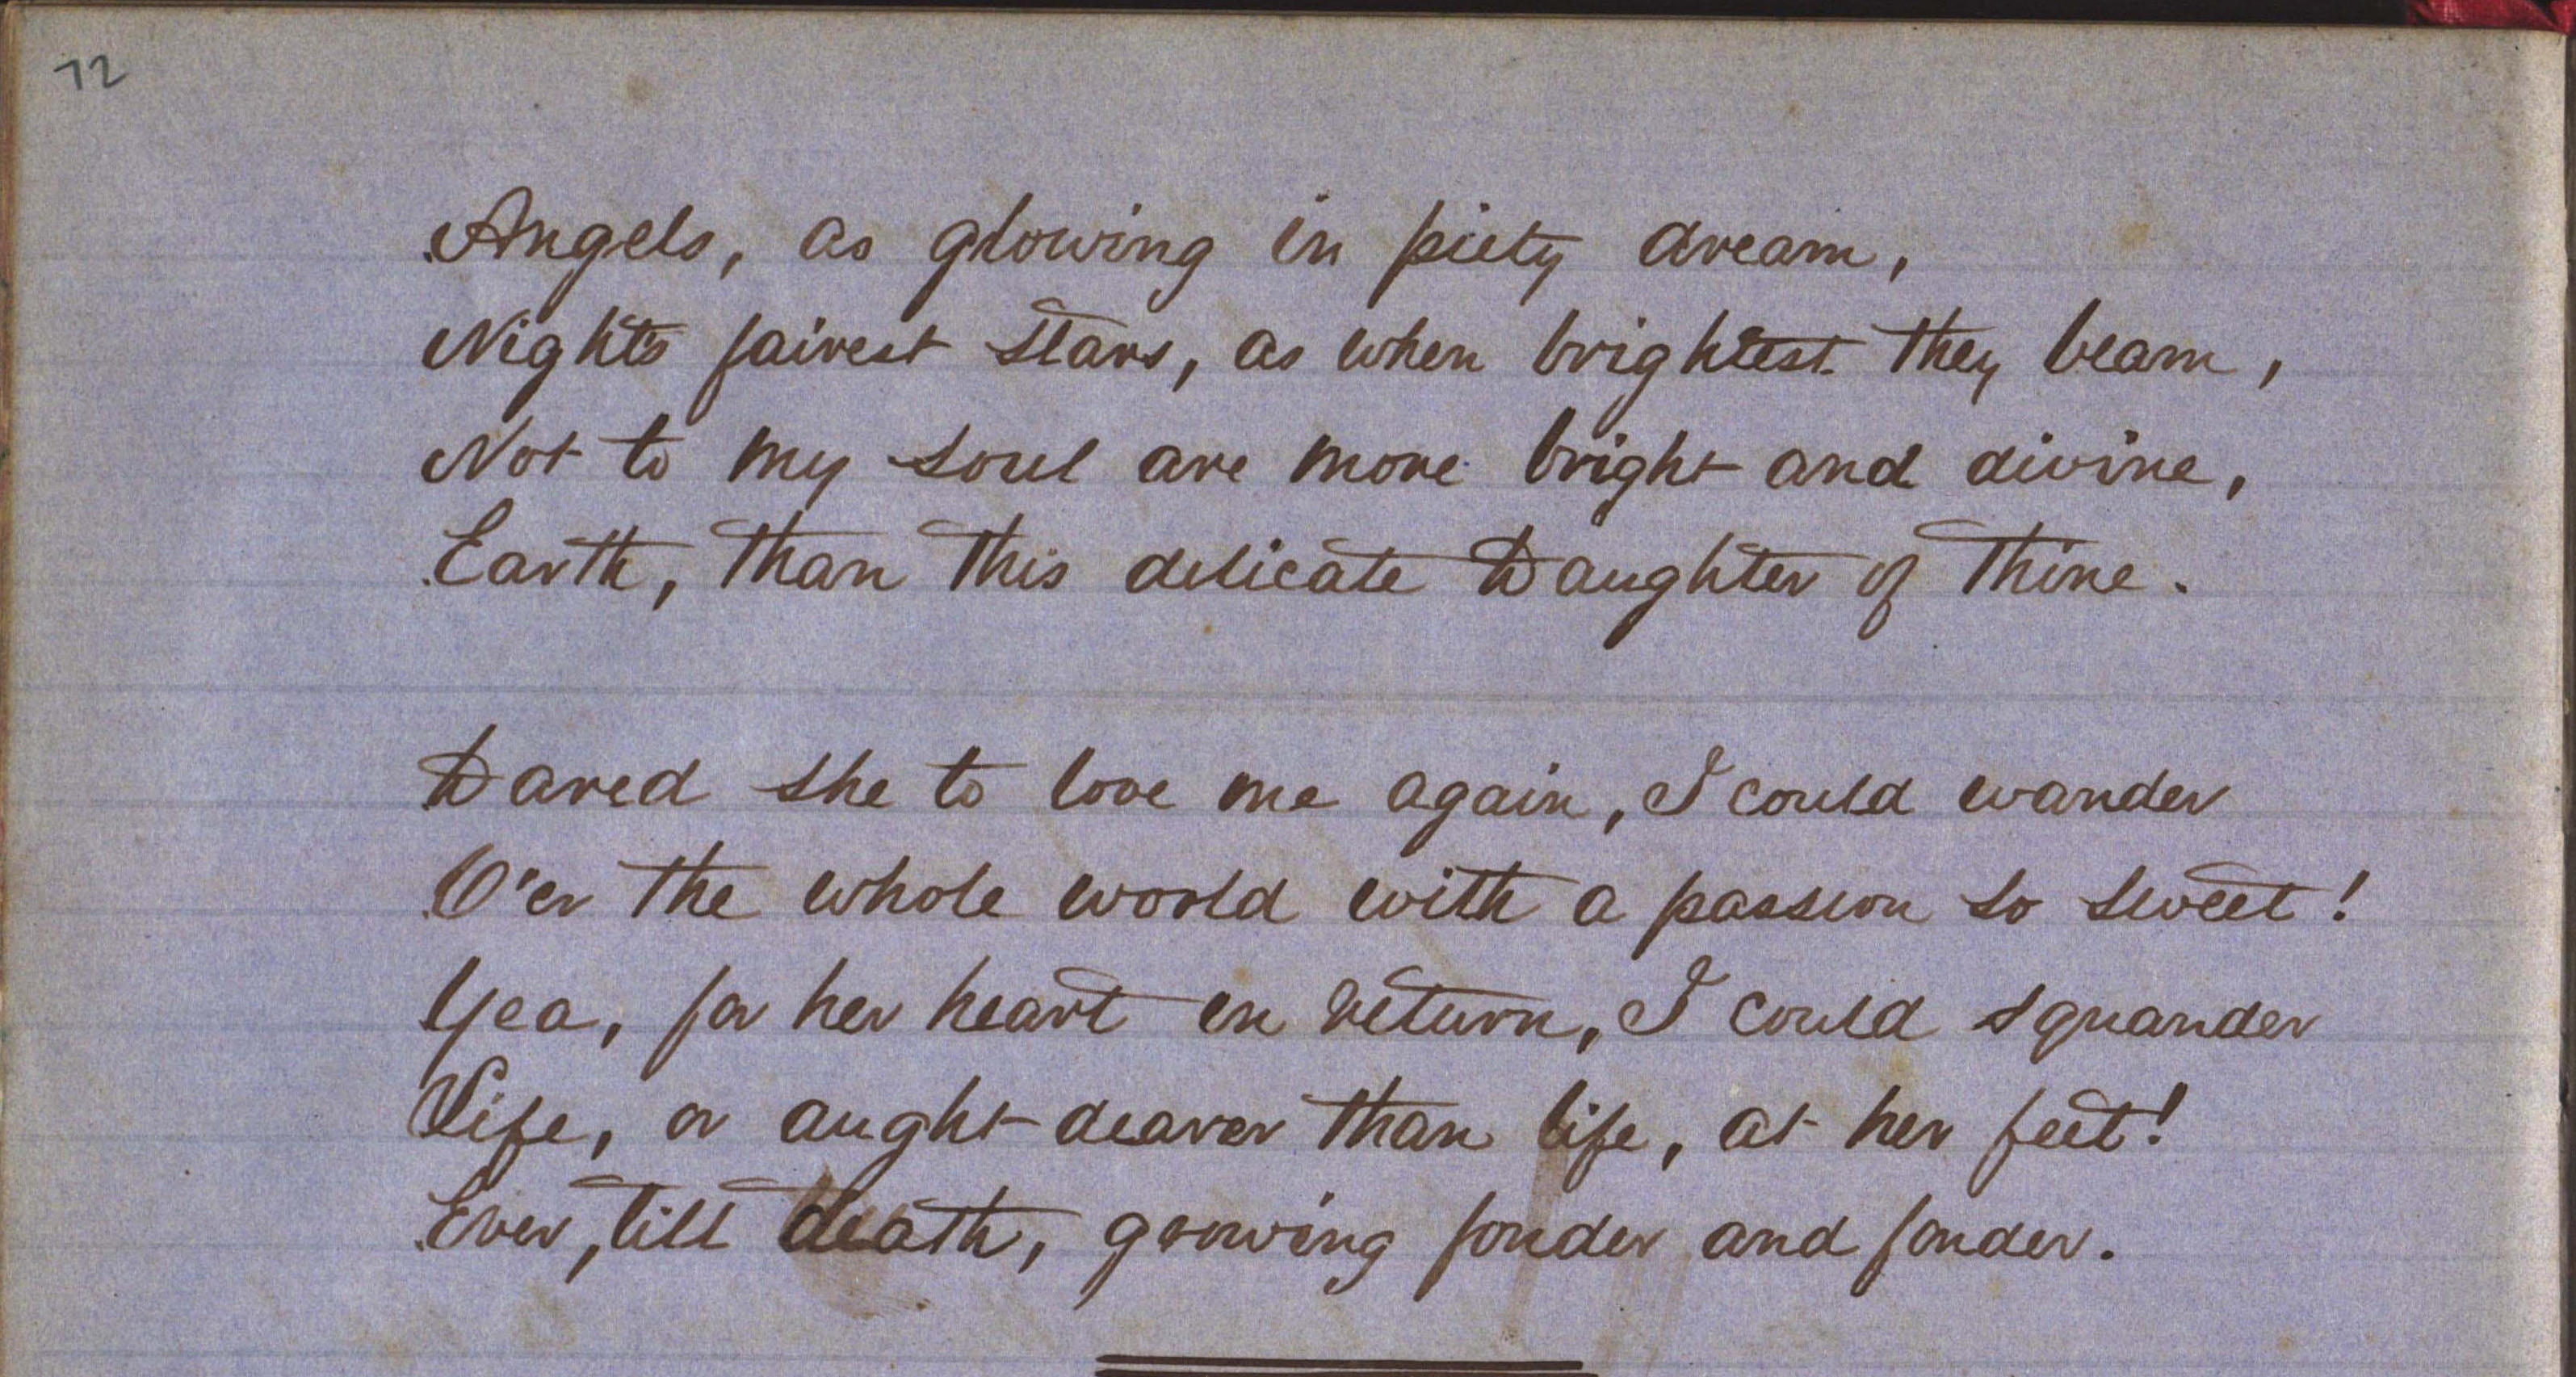 72
Angels, as glowing in piety dream,
Night's fairest stars, as when brightest they beam,
Not to my soul are more bright and divine,
Earth, than this delicate Daughter of Thine.
Dared she to love me again, I could wander
O'er the whole world with a passion so sweet!
Yea, for her heart in return, I could squander
Life, or aught dearer than life, at her feet!
Ever, till death, growing fonder and fonder.